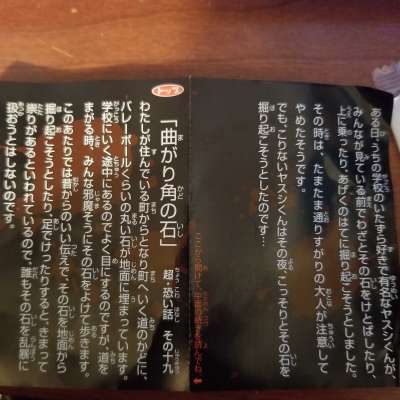 トップ
「曲がり角の石」 超・恐い話 その十九
わたしが住んでいる町からとなり町へいく道のかどに、
バレーボールくらいの丸い石が地面に埋まっています。
学校にいく途中にあるのでよく目にするのですが、道を
まがる時、みんな邪魔そうにその石をよけて歩きます。
このあたりでは昔からのいい伝えで、その石を地面から
掘り起こそうとしたり、足でけったりすると、きまって
祟りがあるといわれているので、誰もその石を乱暴に
扱おうとはしないのです。
ある日、うちの学校のいたずら好きで有名なヤスシくんが、
みんなが見ている前でわざとその石をけとばしたり、
上に乗ったり、あげくのはてに掘り起こそうとしました。
その時は、たまたま通りすがりの大人が注意して
やめたそうです。
でも、こりないヤスシくんはその夜、こっそりとその石を
掘り起こそうとしたのです…
ここから開けて、中面の続きを読んでね